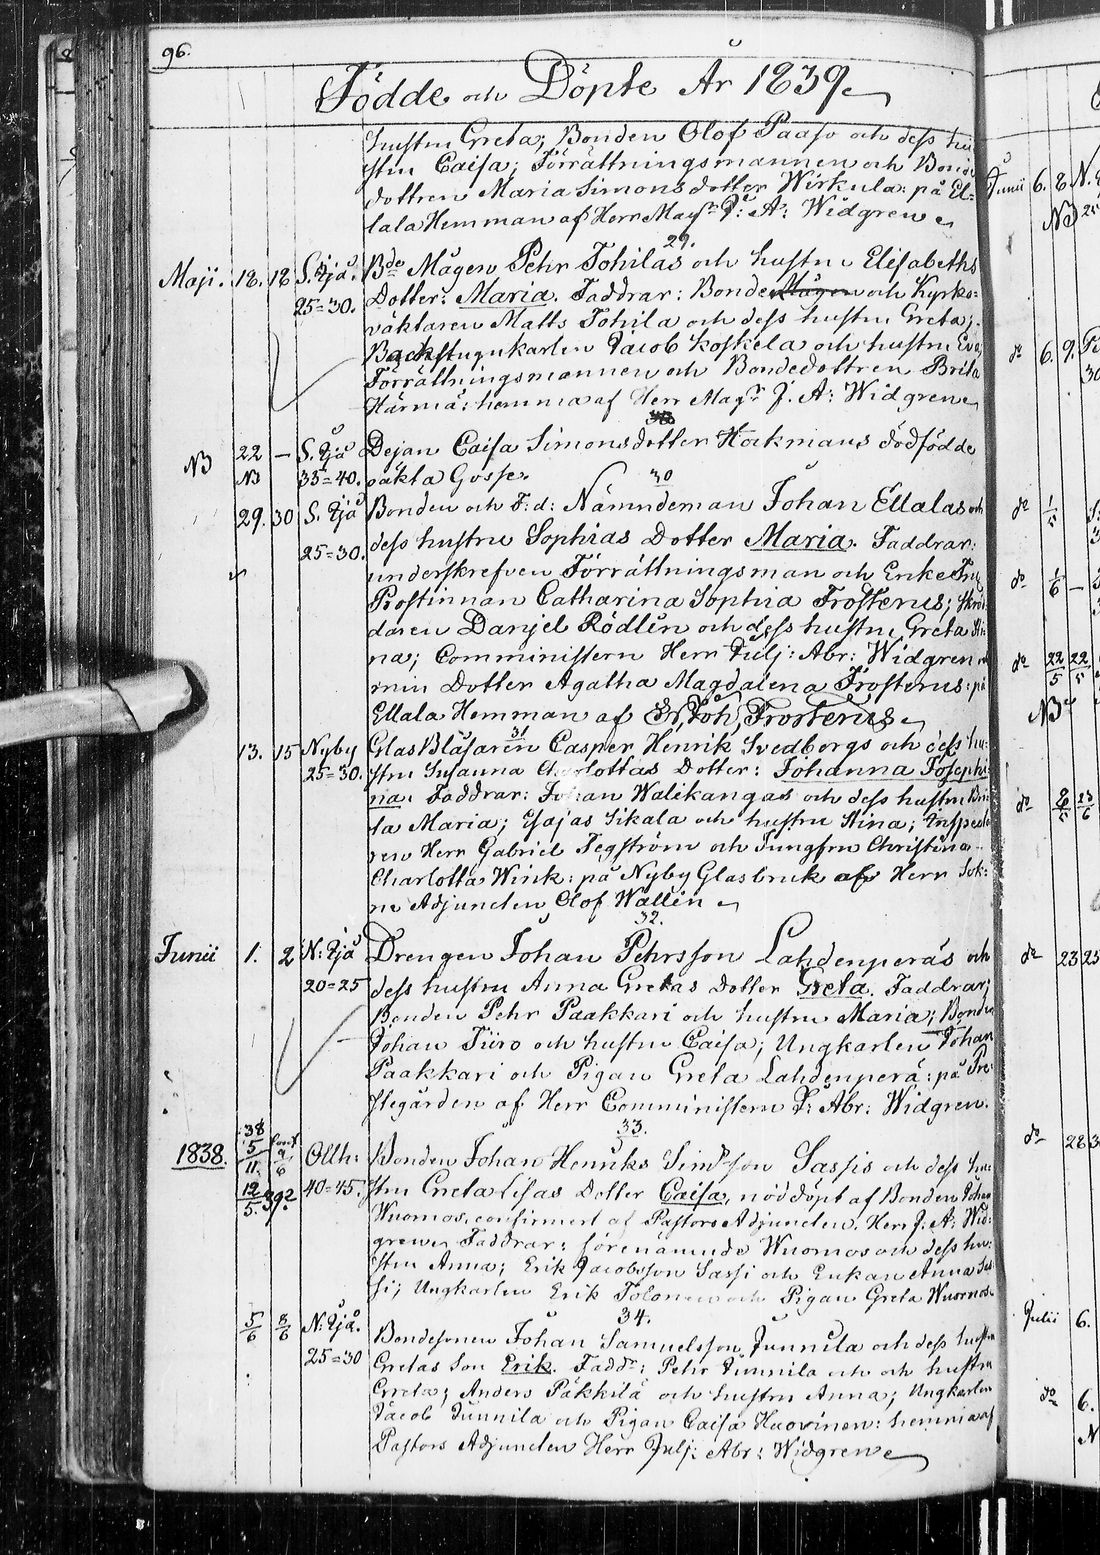 96.
Födde och Döpte År 1839
hustru Greta; Bonden Olof Paaso och dess hu
stru Caisa; Förrättningsmannen och Bonde
dottren Maria Simonsdotter Wirkula: på El=
lala Hemman af Herr Mag:r J: A: Widgren
29.
Maji. 12. 18 S. Ijå. Bde Mågen Pehr Tohilas och hustru Elisabeths
25=30. Dotter: Maria. Faddrar: Bonde Mågen och Kyrko=
väktaren Matts Tohila och dess hustru Greta;
Backstugukarlen Jacob Koskela och hustru Eva;
Förrättningsmannen och Bondedottren Brita
Härmä: hemma af Herr Mag:r J. A: Widgren
22 — S. Ijå Dejan Caisa Simonsdotter Hackmans dödfödde
NB NB 35=40. oäkta Gosse.
30
29. 30 S. Ijå Bonden och F:d: Nämndeman Johan Ellalas och
25=30. dess hustru Sophias Dotter Maria. Faddrar:
underskrefven Förrättningsman och Enke Fru
Prostinnan Catharina Sophia Frosterus; Skräd
daren Danjel Rödlin och dess hustru Greta Sti
na; Comministern Herr Julj: Abr: Widgren och
min Dotter Agatha Magdalena Frosterus: på
Ellala Hemman af Joh, Frosterus
31
13. 15 Nyby Glas Blåsaren Casper Henrik Svedborgs och dess hu:
25=30. stru Susanna Charlottas Dotter: Johanna Josephi
na. Faddrar: Johan Walikangas och dess hustru Bri:
ta Maria; Esajas Sikala och hustru Stina; Inspecto
ren Herr Gabriel Tegström och Jungfru Christina
Charlotta Wink: på Nyby Glasbruk af Herr Sok:
ne Adjuncten Olof Wallin
32.
Junii 1. 2 N: Ijå Drengen Johan Pehrsson Lahdenperäs och
20=25 dess hustru Anna Gretas Dotter Greta. Faddrar;
Bonden Pehr Paakkari och hustru Maria; Bonden
Johan Tiiro och hustru Caisa; Ungkarlen Johan
Paakkari och Pigan Greta Lahdenperä: på Pre
stegården af Herr Comministern J: Abr: Widgren.
33.
1838. 38 5/11. 9/6 Ollh: Bonden Johan Henriks Simsson Sassis och dess hu:
12/5. 39? 40=45. stru Greta Lisas Dotter Caisa, nöddöpt af Bonden Johan
Wuornos, confirmert af Pastors Adjuncten, Herr J: A: Wid:
gren. Faddrar: förenämnde Wuornos och dess hu:
stru Anna; Erik Jacobsson Sassi och Enkan Anna Sas
si; Ungkarlen Erik Tolonen och Pigan Greta Wuornos.
34.
5/6 8/6 N: Ijå. Bondesonen Johan Samuelsson Junnila och dess hustru
25=30 Gretas Son Erik. Fadd:r; Pehr Junnila och och hustru
Greta; Anders Päkkilä och hustru Anna; Ungkarlen
Jacob Junnila och Pigan Caisa Huovinen: hemma af
Pastors Adjuncten Herr Julj: Abr: Widgren
Junii 6. 8. N.
NB 25
do 6. 9.
30
do 1/5
do 1/6 —
do 22/5 22/5
NB
do 8/5 23/6
do 23 25
do 28
Julii 6.
do 6.
N